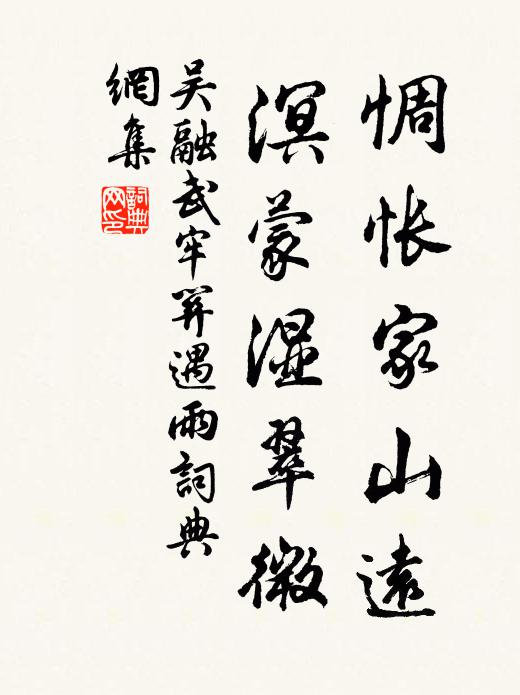 惆怅家山遠
溟蒙湿翠微
吴融武牢関遇雨詞典
網集
詞典网印